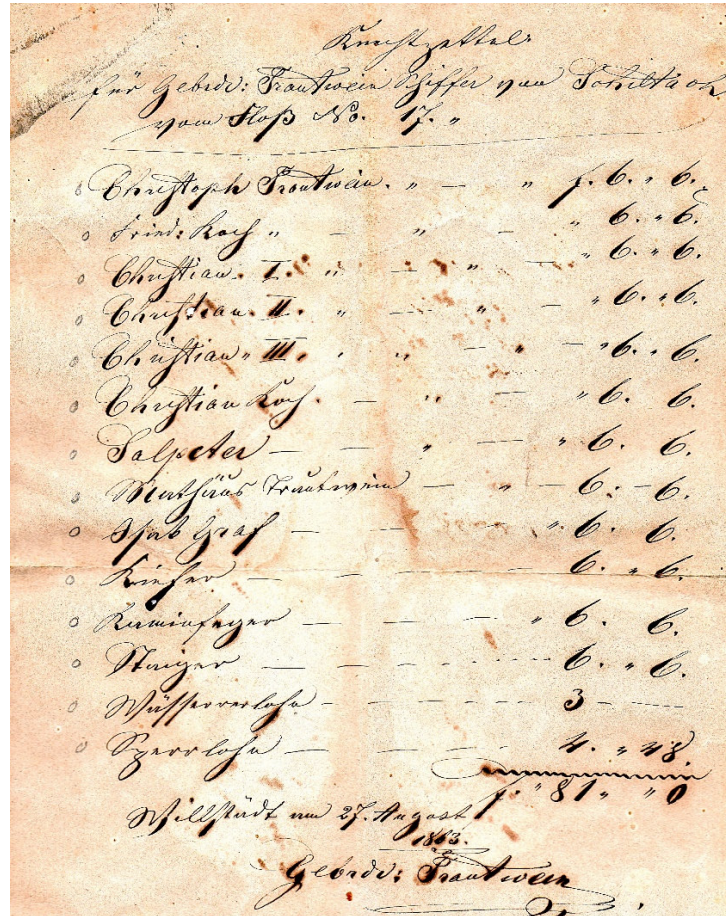 Knechtzettel.
für Gebrdr: Trautwein Schiffer von Schiltach
vom Floß No. 17. "
Christoph Trautwein. " — " f. 6. " 6.
Fried: Koch " — " — " 6. " 6.
Christian. I. " — " — " 6. " 6.
Christian. II. " — " — " 6. " 6.
Christian " III. " " — " — " 6. " 6.
Christian Koch. — " — " 6. 6.
Salpeter — " — " 6. 6.
Mathäus Trautwein — " — 6. – 6.
Graf — — " 6. 6.
Kiefer — — — — 6. " 6.
Kaminfeger — — — " 6. 6.
Staiger — — — — 6. " 6.
Wässererlohn — — — 3 —
Sperrlohn — — — — 4. " 48.
f. " 81 " " 0
Willstädt am 27. August
1863.
Gebrdr: Trautwein